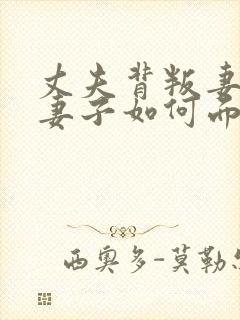 丈夫背叛妻
妻子如何而
西奥多-莫勒